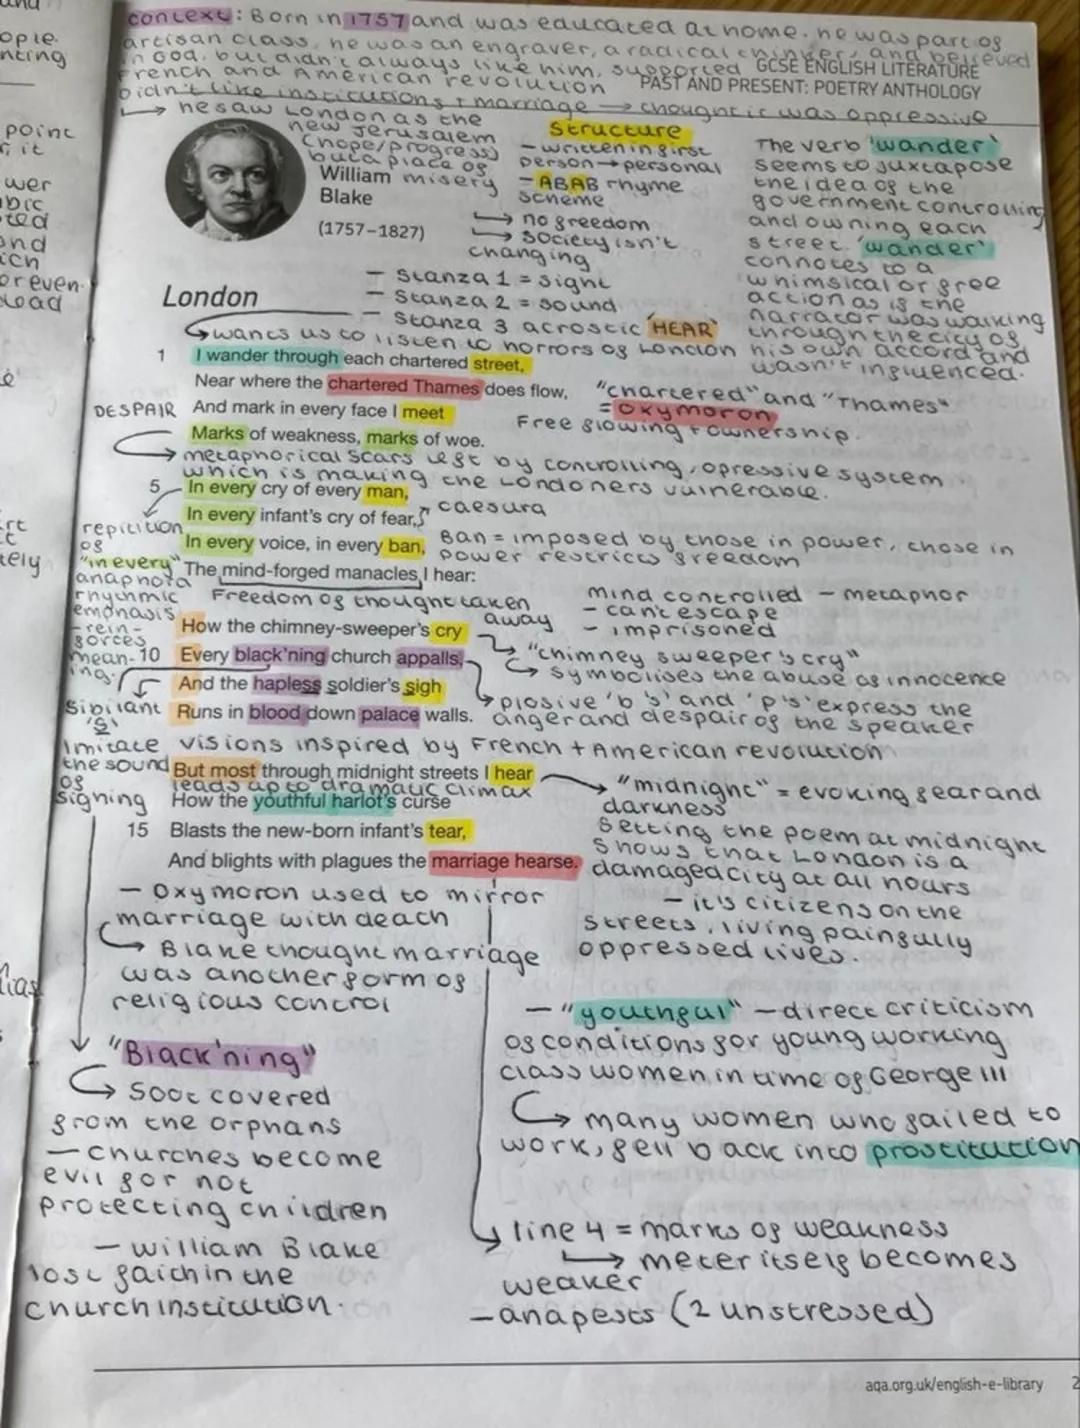 context: Born in 1757 and was educated at home. he was part of
artisan class, he was an engraver, a radical thinker, and believed
in God, but didn't always like him, supported
French and American revolution
GCSE ENGLISH LITERATURE
PAST AND PRESENT: POETRY ANTHOLOGY
Didn't like institutions + marriage → thought it was oppressive
→ he saw London as the
new Jerusalem
(hope/progress)
but a place of
misery
William
Blake
(1757–1827)
Structure
- written in first
person → personal
- ABAB rhyme
scheme
→ no freedom
→ society isn't
changing
- Stanza 1 = sight
- Stanza 2 = sound
- Stanza 3 acrostic 'HEAR'
The verb 'wander'
seems to juxtapose
the idea of the
government controlling
and owning each
street. 'wander'
connotes to a
whimsical or free
action as if the
narrator was walking
through the city of
his own accord and
wasn't influenced.
London
→ wants us to listen to horrors of London
1 I wander through each chartered street,
Near where the chartered Thames does flow,
"chartered" and "Thames"
= oxymoron
Free flowing + ownership.
DESPAIR And mark in every face I meet
Marks of weakness, marks of woe.
→ metaphorical scars left by controlling, opressive system
which is making the Londoners vulnerable.
5 In every cry of every man,
In every infant's cry of fear, caesura
In every voice, in every ban,
Ban = imposed by those in power, those in
power restricts freedom
repitition
of
"in every"
anaphora
rhythmic
emphasis
- rein-
forces
mean-
ing.
The mind-forged manacles I hear:
Freedom of thought taken
away
mind controlled - metaphor
- can't escape
- imprisoned
How the chimney-sweeper's cry
10 Every black'ning church appalls,
And the hapless soldier's sigh
Runs in blood down palace walls.
"chimney sweeper's cry"
→ symbolises the abuse of innocence
→ plosive 'b's' and 'p's' express the
anger and despair of the speaker
sibilant
's'
imitate
the sound
of
sighing
visions inspired by French + American revolution
But most through midnight streets I hear
leads up to dramatic climax
How the youthful harlot's curse
15 Blasts the new-born infant's tear,
And blights with plagues the marriage hearse.
→ "midnight" = evoking fear and
darkness
Setting the poem at midnight
shows that London is a
damaged city at all hours
- it's citizens on the
streets, living painfully
oppressed lives.
- Oxymoron used to mirror
marriage with death
→ Blake thought marriage
was another form of
religious control
"Black'ning"
→ Soot covered
from the orphans
- churches become
evil for not
protecting children
- william Blake
lost faith in the
church institution.
- "youthful" - direct criticism
of conditions for young working
class women in time of George III
→ many women who failed to
work, fell back into prostitution
line 4 = marks of weakness
→ meter itself becomes
weaker
- anapests (2 unstressed)
aqa.org.uk/english-e-library